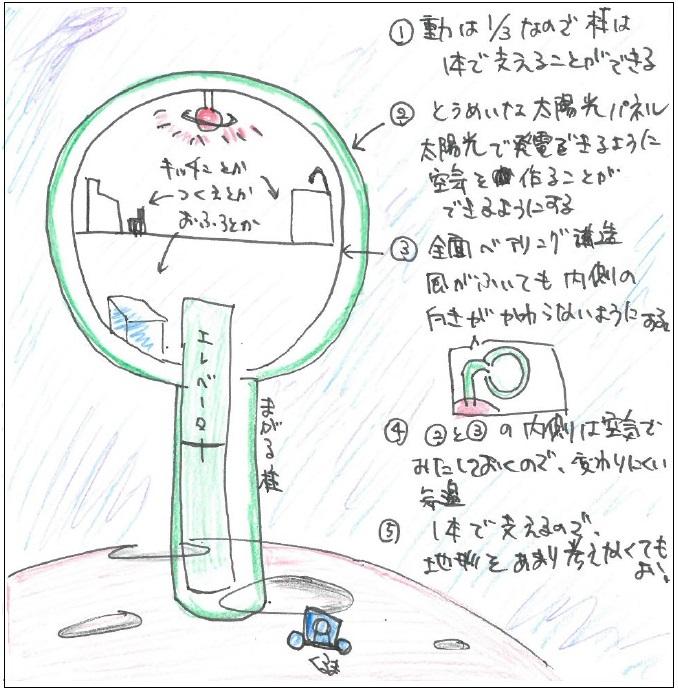 ① 重力は 1/3 なので 柱は
1本で支えることができる
② とうめいな 太陽光パネル
太陽光で発電できるように
空気を作ることが
できるようにする
キッチンとか
つくえとか
おふろとか
③ 全面ベアリング構造
風がふいても 内側の
向きがかわらないようにする。
エレベーター
まがる柱
④ ②と③の内側は空気で
みたしておくので、変わりにくい
⑤ 1本で支えるので、
地形をあまり考えなくても
よい。
くるま